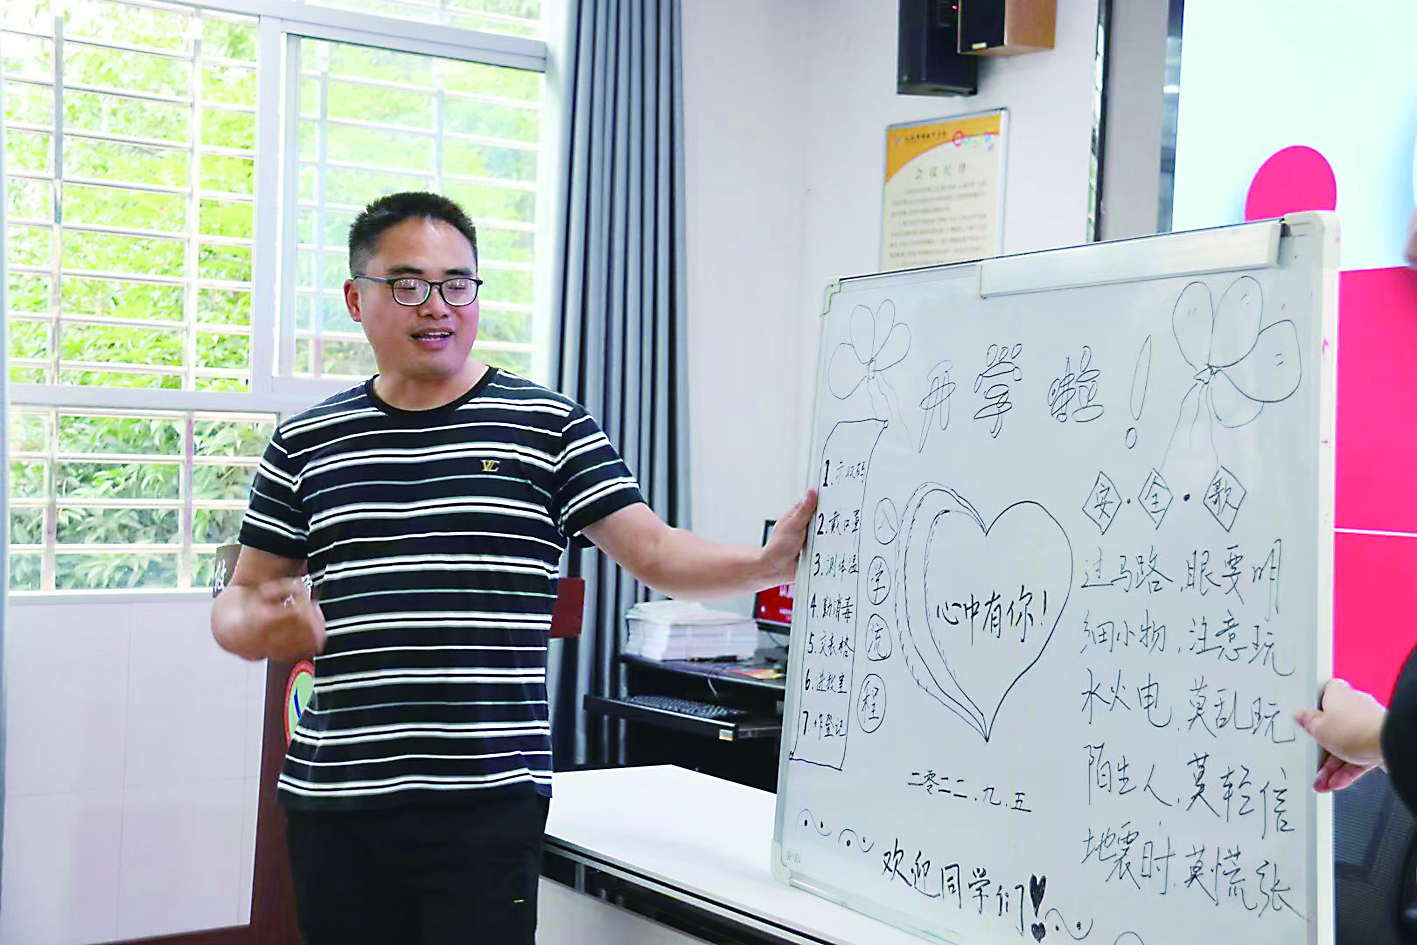 会议纪律
开学啦!
1.示双码
2.戴口罩
3.测体温
4.勤消毒
5.交表格
6.进教室
7.作登记
入学流程
心中有你!
二零二二.九.五
安·全·歌
过马路,眼要明
细小物,注意玩
水火电,莫乱玩
陌生人,莫轻信
地震时,莫慌张
欢迎同学们!